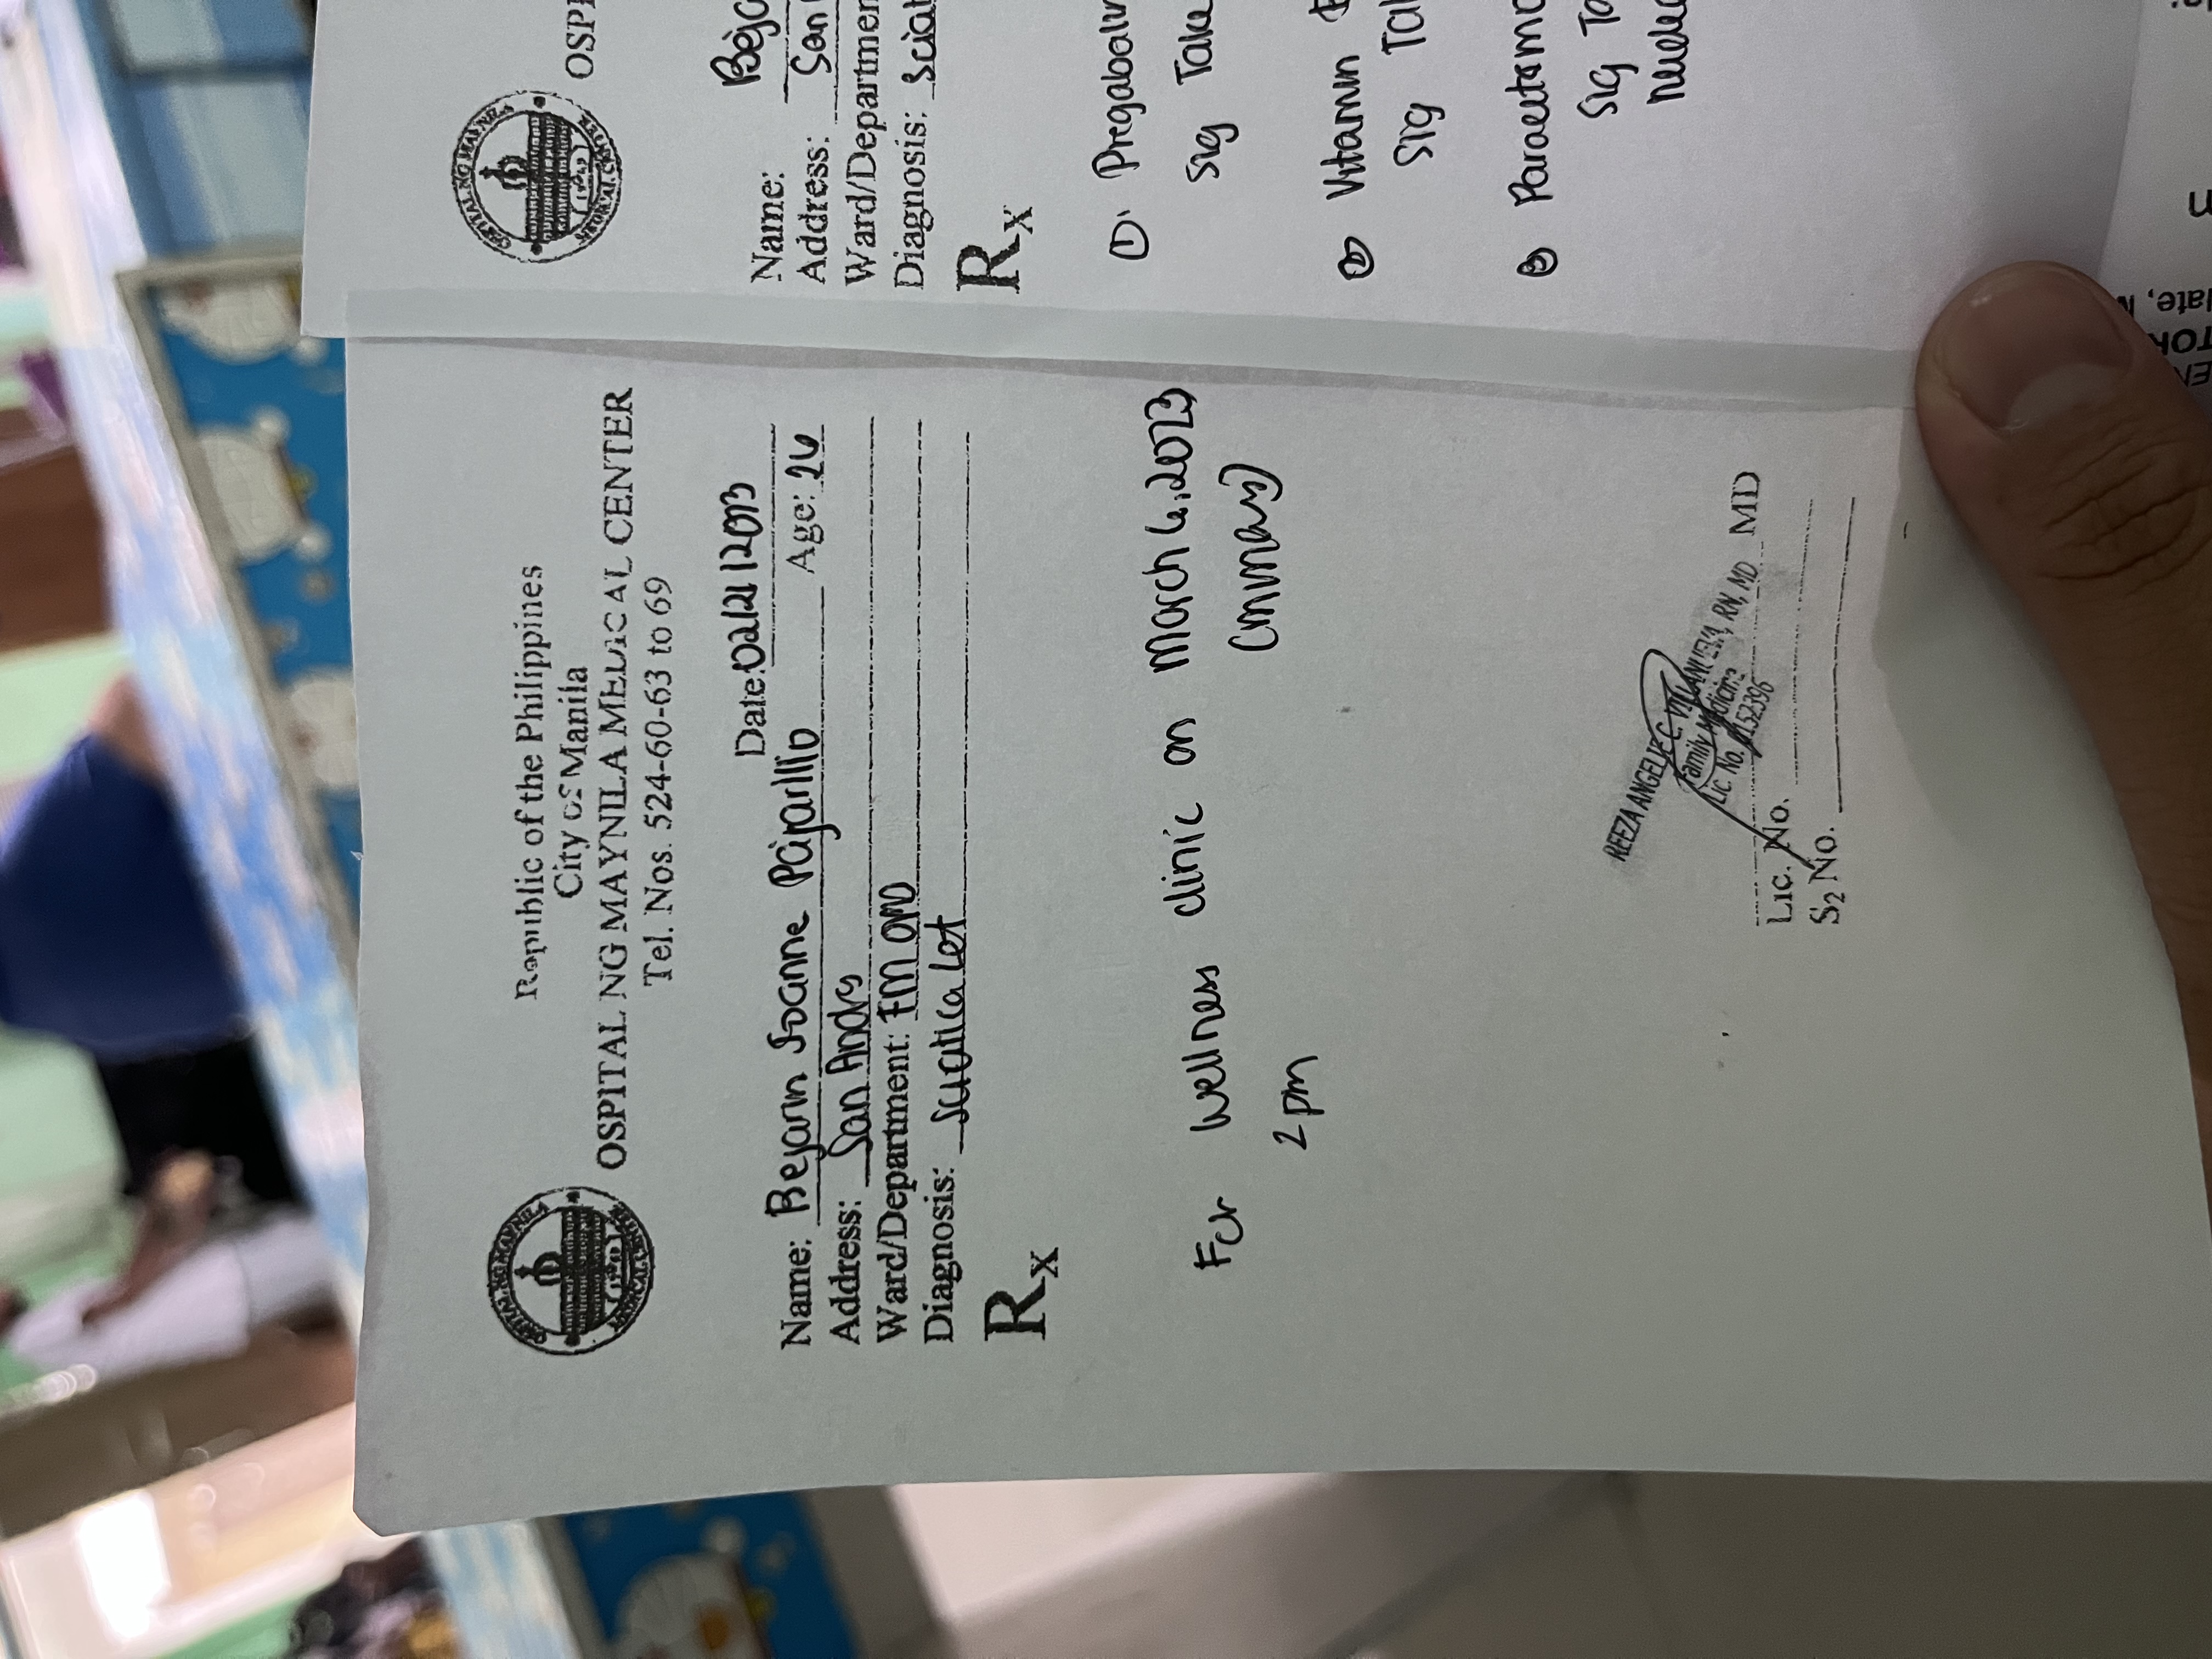 OSPITAL NG MAYNILA
MEDICAL CENTER
Republic of the Philippines
City of Manila
OSPITAL NG MAYNILA MEDICAL CENTER
Tel. Nos. 524-60-63 to 69
Date: 02/21/2023
Name: Bejarin Joanne Pajarillo Age: 26
Address: San Andrs
Ward/Department: FM OPD
Diagnosis: Sciatica Left
Rx
For Wellness clinic on March 6, 2023
2 pm
REEZA ANGELIE C. VILLANUEVA, RN, MD
Family Medicine
Lic. No. 0152396
MD
Lic. No.
S2 No.
OSPITAL NG MAYNILA
1969
MEDICAL CENTER
OSPI
Name: Beja
Address: San
Ward/Departmen
Diagnosis: Sciat
Rx
1. Pregabalin
Sig Take
2 Vitamin B
Sig Tak
3 Paracetamo
Sig Ta
neede